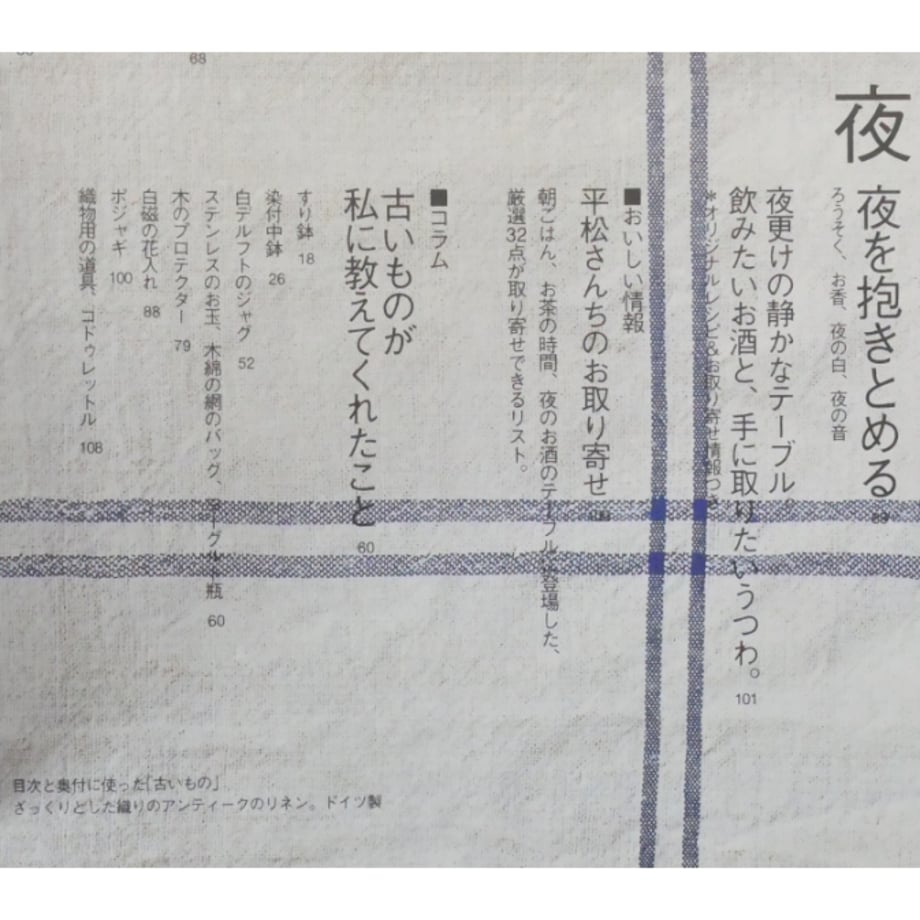 夜 夜を抱きとめる 89
ろうそく、お香、夜の白、夜の音
夜更けの静かなテーブル。
飲みたいお酒と、手に取りたいうつわ。 101
*オリジナルレシピ&お取り寄せ情報つき
■おいしい情報
平松さんちのお取り寄せ
朝ごはん、お茶の時間、夜のお酒のテーブルに登場した、
厳選32点が取り寄せできるリスト。
■コラム
古いものが
私に教えてくれたこと 60
すり鉢 18
染付中鉢 26
白デルフトのジャグ 52
ステンレスのお玉、木綿の網のバッグ、ヨーグルト瓶 60
木のプロテクター 79
白磁の花入れ 88
ポジャギ 100
織物用の道具、コドゥレットル 108
68
目次と奥付に使った「古いもの」
ざっくりとした織りのアンティークのリネン。ドイツ製